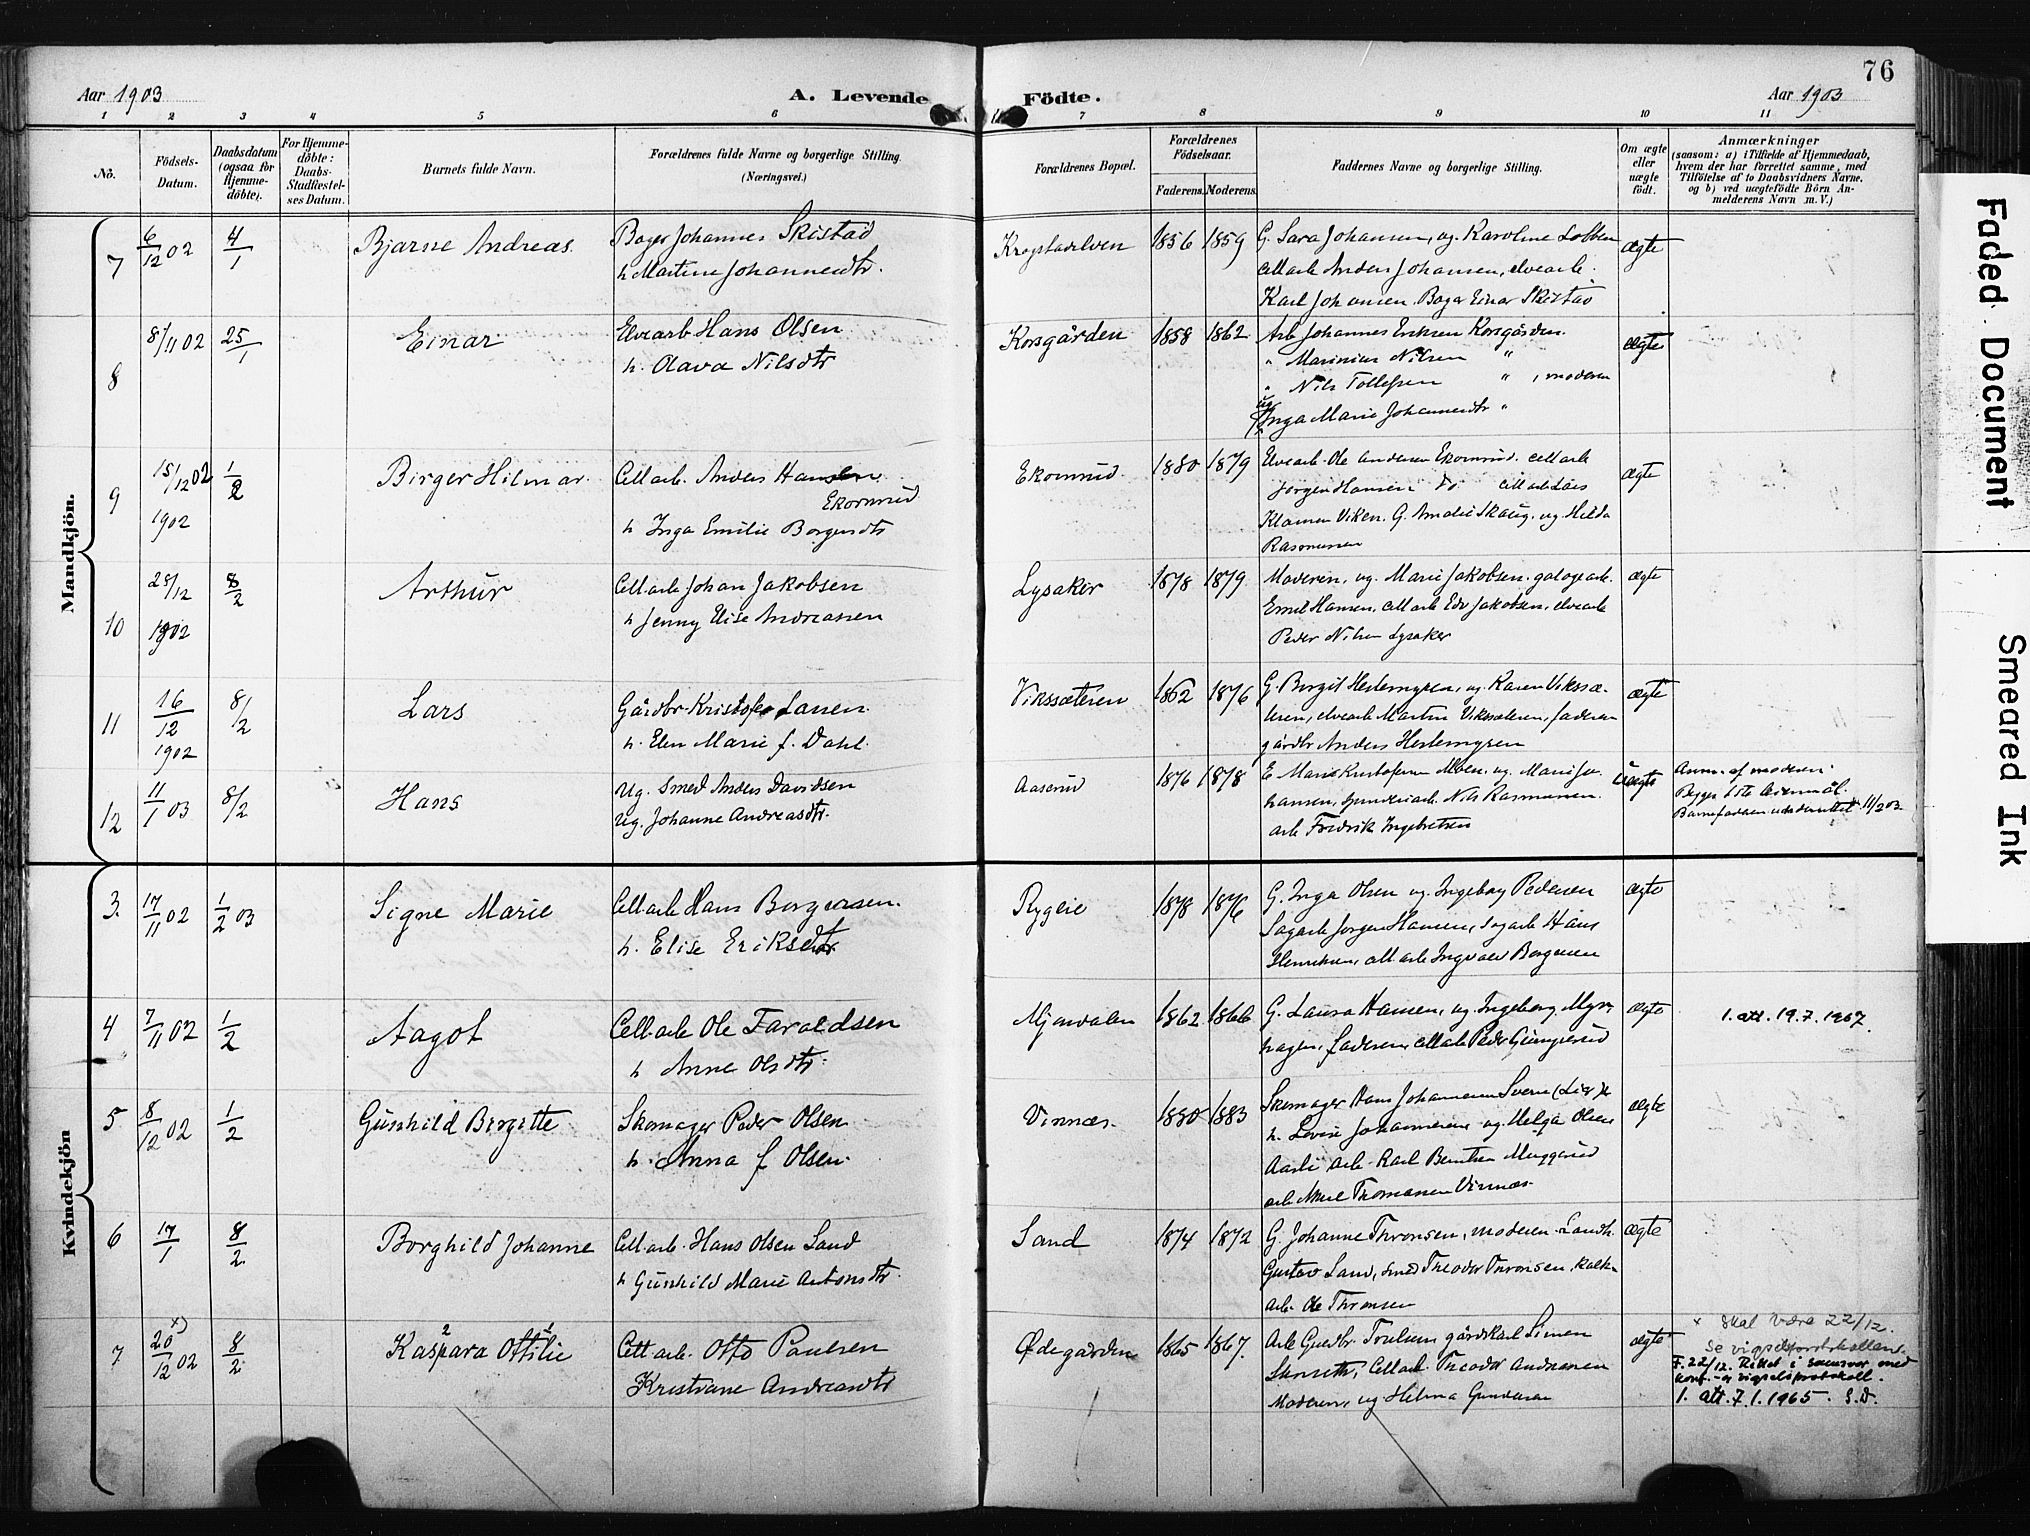 76
Aar 1903
A. Levende Födte.
Aar 1903
1 2 3 4 5 6 7 8 9 10 11
No.
Födsels-Datum.
Daabsdatum (ogsaa for Hjemme-döbte).
For Hjemme-döbte: Daabs-Stadfæstel-ses Datum.
Barnets fulde Navn.
Forældrenes fulde Navne og borgerlige Stilling. (Næringsvei.)
Forældrenes Bopæl.
Forældrenes Födselsaar.
Faderens. Moderens.
Faddernes Navne og borgerlig Stilling.
Om ægte eller uægte födt.
Anmærkninger
(saasom: a) i Tilfælde af Hjemmedaab,
hvem der har forrettet samme, med
Tilföielse af to Daabsvidners Navne.
og b) ved uægtefödte Börn An-
melderens Navn m.V.)
Mandkjön.
7 6/12 02 4/1 Bjarne Andreas Bager Johannes Skistad Krogstadelven 1856 1859 G. Sara Johansen, ug. Karoline Lobben ægte
h. Martine Johannesdtr. cellarb Anders Johansen, elvearb.
Karl Johansen. Bager Einar Skistad
8 8/11 02 25/1 Einar Elvearb Hans Olsen Korsgården 1858 1862 Arb Johannes Eriksen Korsgården. ægte
h. Olava Nilsdtr " Marinius Nilsen "
" Nils Tollefsen " , moderen
ug Inga Marie Johannesdtr "
9 15/12 02 1/2 Birger Hilmar. Cellarb. Anders Hansen Ekornrud 1880 1879 Elvearb. Ole Andersen Ekornrud. cellarb ægte
1902 Ekornrud Jørgen Hansen do cellarb Lars
h Inga Emilie Borgersdtr Klausen Viken. G. Amalie Skaug. ug Hilda
Rasmussen
10 25/12 8/2 Arthur Cellarb Johan Jakobsen Lysaker 1878 1879 Moderen, ug. Marie Jakobsen. galogearb. ægte
1902 h Jenny Elise Andreasen Emil Hansen, cellarb Edv Jakobsen, elvearb
Peder Nilsen Lysaker
11 16/12 8/2 Lars Gårdbr. Kristofer Larsen Vikssæteren 1862 1876 G. Borgit Hestemyren, ug. Karen Vikssæ- ægte
1902 h. Elen Marie f. Dahl. teren, elvearb Martin Vikssæteren, faderen
gårdbr Anders Hestemyren
12 11/1 03 8/2 Hans Ug. Smed Anders Davidsen Aaserud 1876 1878 E. Marie Kristofersen Moen, ug. Marie Jo- uægte Anm. af moderen.
Ug. Johanne Andreasdtr. hansen, spinderiarb. Nils Rasmussen. Begges 1ste leiermål.
arb Fredrik Ingebretsen Barnefaderen underrettet 11/2 03.
Kvindekjön
3. 17/11 02 1/2 03 Signe Marie Cellarb Hans Borgersen. Ryglie 1878 1876 G. Inga Olsen ug. Ingeborg Pedersen ægte
h. Elise Eriksdtr Sagarb Jørgen Hansen, sagarb Hans
Henriksen, cellarb Ingvald Borgersen
4 7/11 02 1/2 Aagot Cell.arb Ole Faraldsen Mjøndalen 1862 1866 G. Laura Hansen, ug. Ingeborg Myr- ægte 1. att. 19.7.1967.
h Anne Olsdtr. hagen, faderen, cellarb Peder Gunnerud
5 8/12 02 1/2 Gunhild Birgitte Skomager Peder Olsen Vinnæs. 1880 1883 Skomager Hans Johannessen Svere (Lier) & ægte
h. Anna f Olsen. h. Lovise Johannesen, ug Helga Olsen
Aaslie arb. Karl Berntsen Muggerud
arb Axel Thomassen Vinnæs.
6 17/1 8/2 Borghild Johanne Cellarb. Hans Olsen Sand Sand 1874 1872 G. Johanne Thronsen, moderen. Landh. ægte
h Gunhild Marie Antonsdtr. Gustav Sand, smed Theodor Thronsen, kalk-
arb. Ole Thronsen
7 20 x)/12 02 8/2 Kaspara 2 Ottilie 1 Cell arb. Otto Paulsen Ødegården 1865 1867. Arb Gudbr. Paulsen gårdskarl Simen ægte x skal være 22/12.
Kristiane Andreasdtr Cellarb. Theodor Andreassen Se vigselsprotokollen.
Moderen, ug Helma Gundersen F. 22/12. Rettet i samsvar med
konf.- og vigselsprotokoll.
1. att. 7.1.1965. S.D.
Faded Document
Smeared Ink